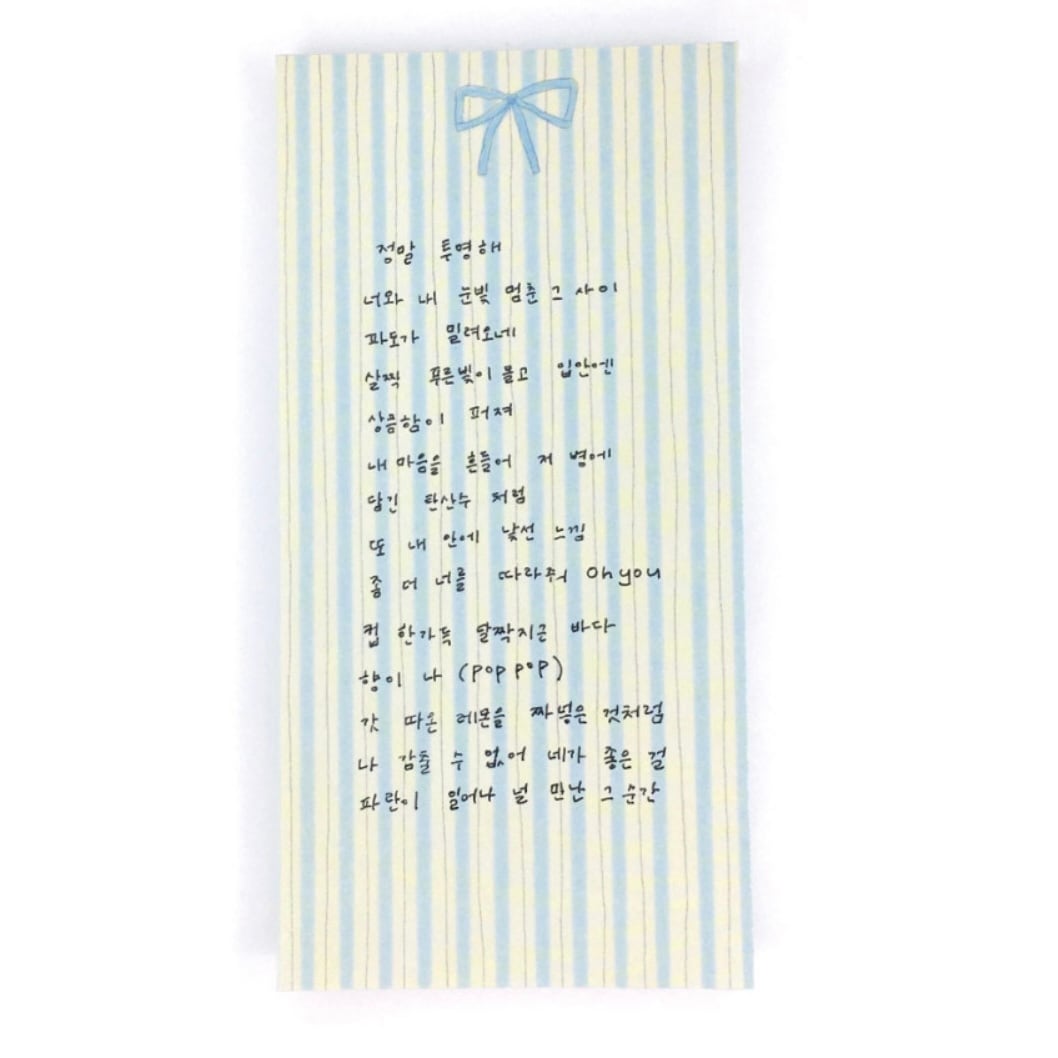 정말 투명해
너와 내 눈빛 멈춘 그 사이
파도가 밀려오네
살짝 푸른빛이 돌고 입안엔
상큼함이 퍼져
내 마음을 흔들어 저 병에
담긴 탄산수 처럼
또 내 안에 낯선 느낌
좀 더 너를 따라줘 Oh you
컵 한가득 달짝지근 바다
향이 나 (pop pop)
갓 따온 레몬을 짜 넣은 것처럼
나 감출 수 없어 네가 좋은 걸
파란이 일어나 널 만난 그 순간